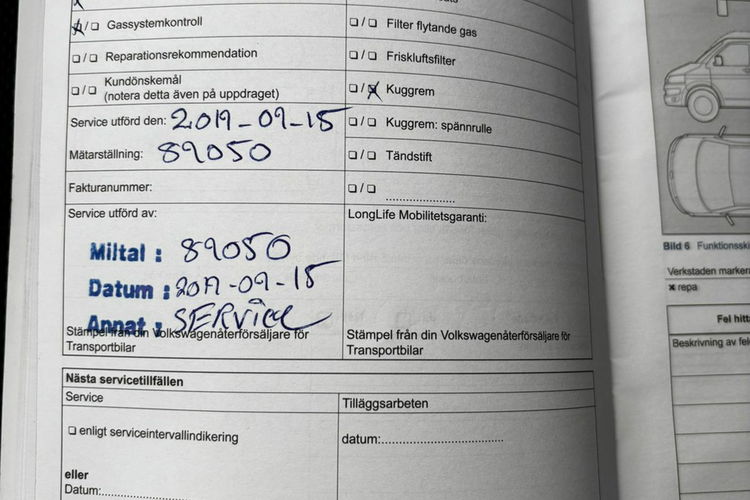 ☒/☐ Gassystemkontroll
☐/☐ Filter flytande gas
☐/☐ Reparationsrekommendation
☐/☐ Friskluftsfilter
☐/☐ Kundönskemål
(notera detta även på uppdraget)
☐/☒ Kuggrem
Service utförd den: 2019-09-15
☐/☐ Kuggrem: spännrulle
Mätarställning: 89050
☐/☐ Tändstift
Fakturanummer:
☐/☐ ....................
Service utförd av:
LongLife Mobilitetsgaranti:
Miltal : 89050
Datum : 2019-09-15
Annat : SERVICE
Stämpel från din Volkswagenåterförsäljare för
Transportbilar
Stämpel från din Volkswagenåterförsäljare för
Transportbilar
Nästa servicetillfällen
Service
Tilläggsarbeten
☐ enligt serviceintervallindikering
datum:..............................
eller
Datum:..............................
Bild 6 Funktionsski
Verkstaden markera
× repa
Fel hitta
Beskrivning av fel